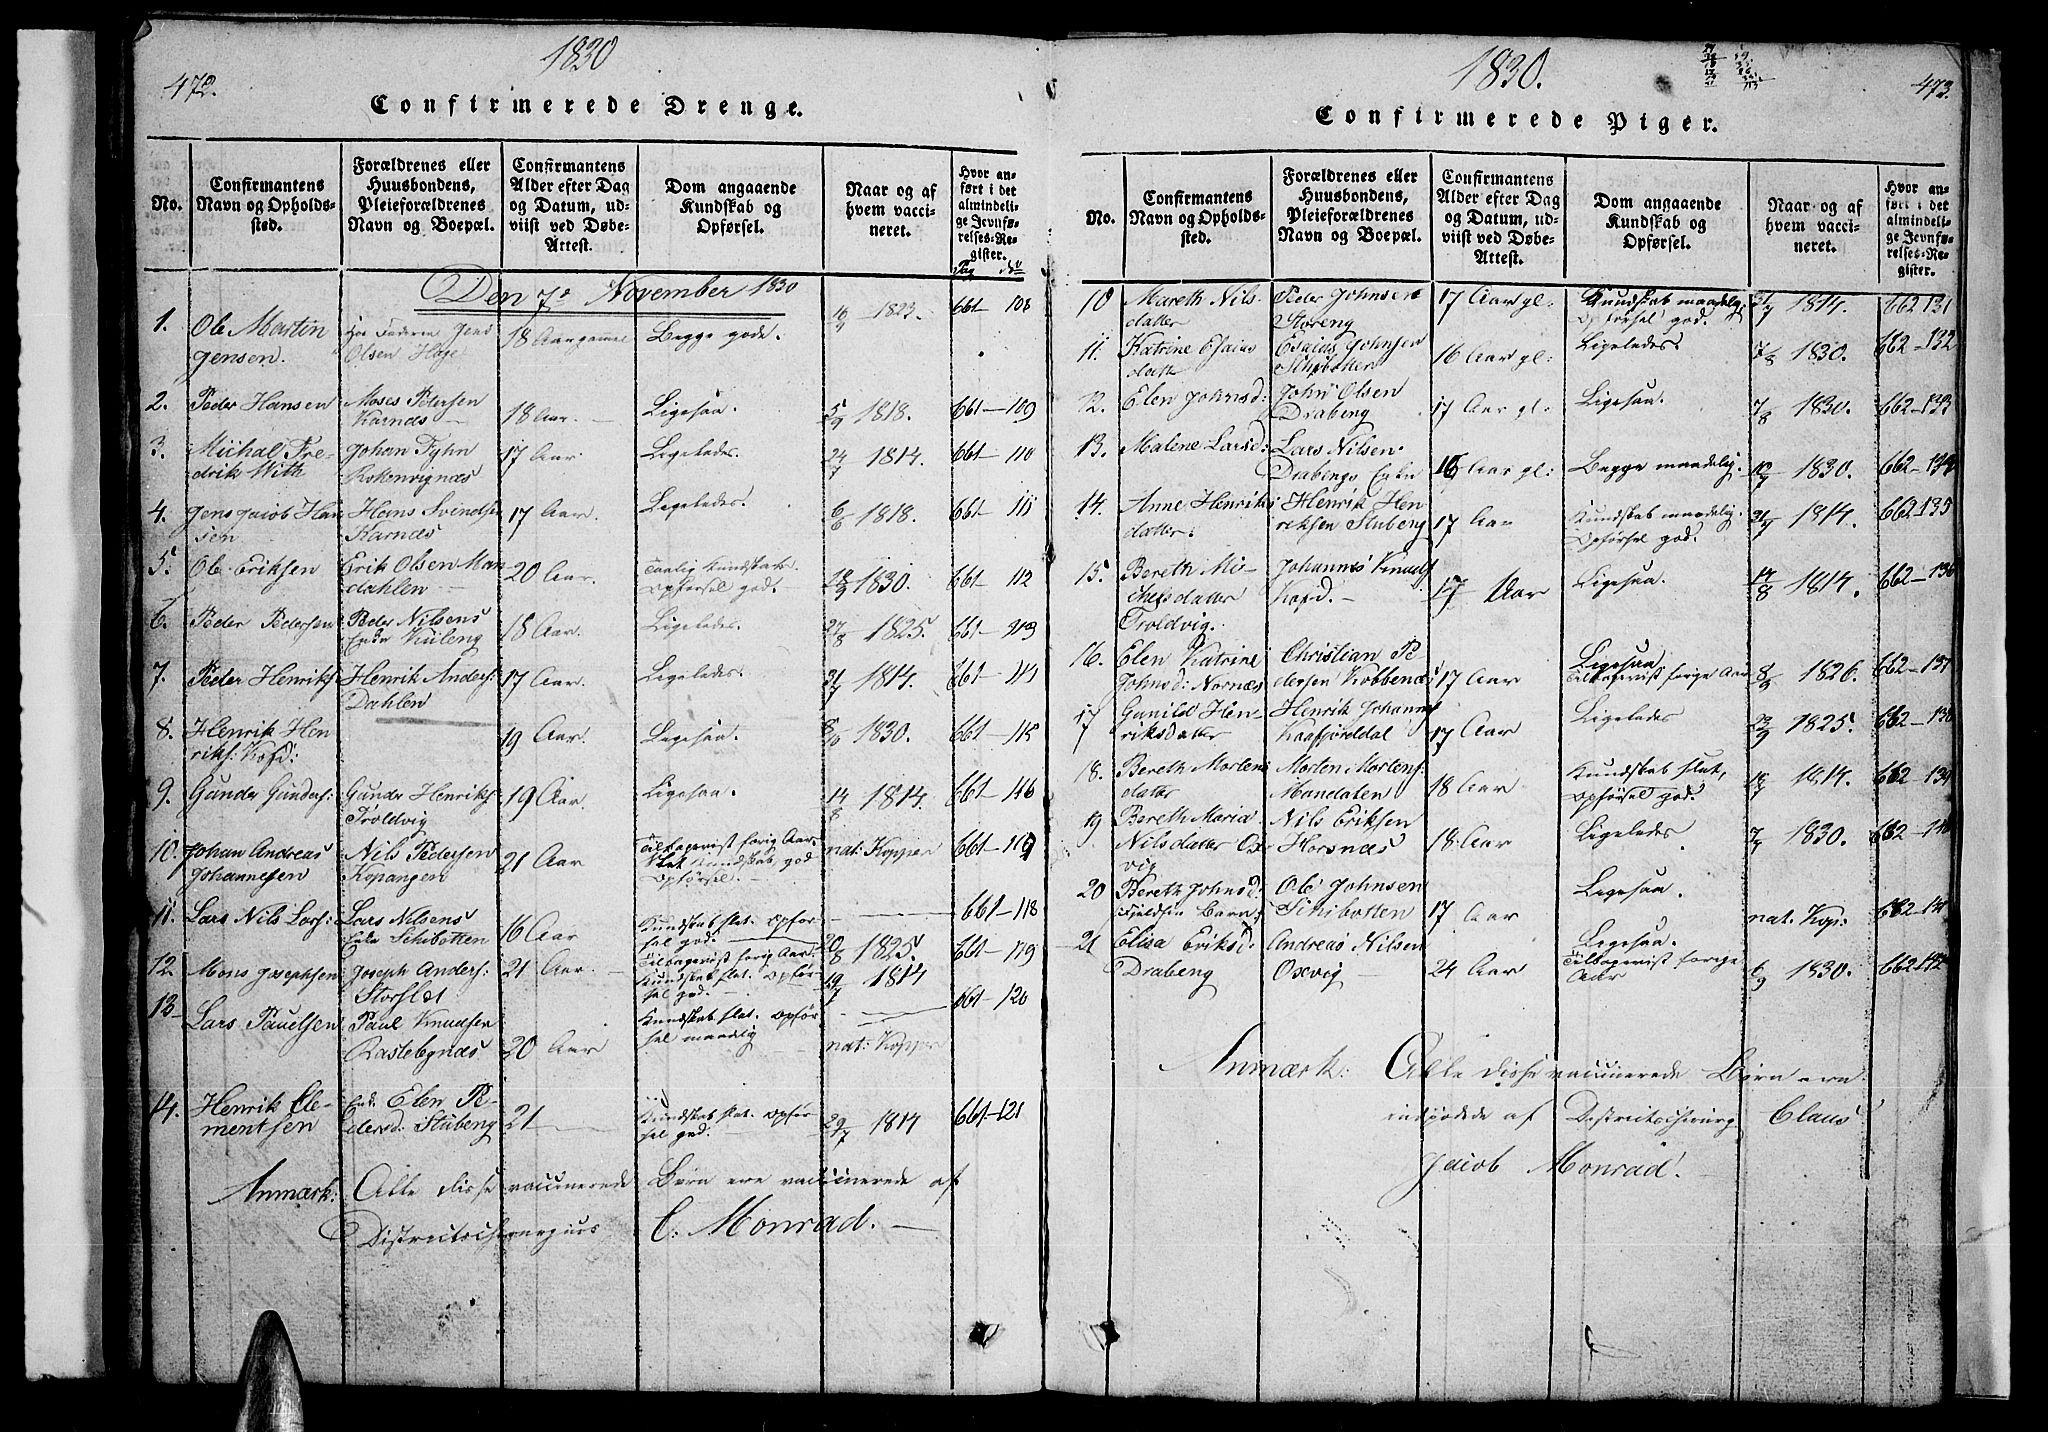 472.
1830
Confirmerede Drenge.
No.
Confirmantens Navn og Opholds-sted.
Forældrenes eller Huusbondens, Pleieforældrenes Navn og Boepæl.
Confirmantens Alder efter Dag og Datum, ud-viist ved Døbe-Attest.
Dom angaaende Kundskab og Opførsel.
Naar og af hvem vacci-neret.
Hvor an-ført i det almindeli-ge Jevnfø-relses-Re-gister.
Pag No
Den 7de November 1830
1. Ole Martin Jensen. Faderen Jens Olsen Hage 18 Aar gammel Begge gode. 1823. 661-108
2. Peder Hansen Moses Petersen Karnæs 18 Aar. Ligesaa. 5/9 1818. 661-109
3. Michal Fredrik With Johan Fyhn Rokenvignæs 17 Aar Ligeledes. 24/7 1814. 661-110
4. Jens Jacob Hansen Hans Svendsen Karnæs 17 Aar. Ligeledes. 6/6 1818. 661-111
5. Ole Eriksen Erik Olsen Mandahlen 20 Aar. Taalig Kundskab. Opførsel god. 28/9 1830. 661-112
6. Peder Pedersen Peder Nilsens Enke Kileng 18 Aar. Ligeledes. 27/8 1825. 661-113
7. Peder Henriks: Henrik Anders: Dahlen 17 Aar. Ligeledes. 21/7 1814. 661-114
8. Henrik Henriks: Kofd: 19 Aar. Ligesaa. 8/10 1830. 661-115
9. Gunder Gunders: Gunder Henriks: Troldvig 19 Aar. Ligesaa. 14/8 1814. 661-116
10. Johan Andreas Johannesen Nils Pedersen Kopangen 21 Aar Tilbageviist forig Aar. Slet Kundskab god Opførsel. nat: Kopper 661-117
11. Lars Nils Lars: Lars Nilsens Enke Schibotten 16 Aar Kundskab slet. Opførsel god. 20/8 1825. 661-118
12. Mons Josephsen Joseph Anders: Storslet 21 Aar. Tilbageviist forig Aar. Kundskab slet. Opførsel god. 19/7 1814 661-119
13. Lars Paulsen Paul Knudsen Rastebynæs 20 Aar Kundskab slet. Opførsel maadelig nat: Kopper 661-120
14. Henrik Clementsen Enk. Elen Pedersd. Stubeng 21 Kundskab slet. Opførsel god. 29/7 1814 661-121
Anmærk: Alle disse vaccinerede Børn ere vaccinerede af
Districtschirurgus C. Monrad.
1830.
473.
Confirmerede Piger.
No.
Confirmantens Navn og Opholds-sted.
Forældrenes eller Huusbondens, Pleieforældrenes Navn og Boepæl.
Confirmantens Alder efter Dag og Datum, ud-viist ved Døbe-Attest.
Dom angaaende Kundskab og Opførsel.
Naar og af hvem vacci-neret.
Hvor an-ført i det almindeli-ge Jevnfø-relses-Re-gister.
10 Mareth Nilsdatter Peder Johnsen Storeng 17 Aar gl: Kundskab maadelig. Opførsel god. 21/7 1814. 662-131
11. Katrine Esaiasdatter Esaias Johnsen Schibotten 16 Aar gl: Ligeledes. 7/8 1830. 662-132
12. Elen Johnsd: John Olsen Drabeng 17 Aar gl: Ligesaa. 7/8 1830. 662-133
13. Malene Larsd: Lars Nilsen. Drabengs Enke 16 Aar gl: Begge maadelig. 12/7 1830. 662-134
14. Anne Henriksdatter. Henrik Henriksen Stubeng 17 Aar Kundskab maadelig. Opførsel god. 21/7 1814. 662-135
15. Bereth Michelsdatter Troldvig. Johannes Knuds Kofd. 17 Aar Ligesaa. 14/8 1814. 662-136
16. Elen Katrine Johnsd: Nornæs Christian Pedersen Kobbenæs 17 Aar Ligesaa Tilbageviist forige Aar 8/9 1826. 662-137
17 Gunild Henriksdatter Henrik Johannes Kaafjorddal 17 Aar Ligeledes 23/9 1825. 662-138
18. Bereth Mortensdatter Morten Mortens: Mandalen 18 Aar Kundskab slet, Opførsel god. 18/7 1814. 662-139
19 Bereth Maria Nilsdatter Oxvig Nils Eriksen Horsnæs 18 Aar Ligeledes 7/7 1830. 662-140
20 Bereth Johnsd: Ole Johnsen Schibotten 17 Aar Ligesaa. nat. Kop: 662-141
21 Elisa Eriksd: Drabeng Andreas Nilsen Oxvig 24 Aar Ligesaa. Tilbageviist forige Aar 6/9 1830. 662-142
Anmærk: Alle disse vaccinerede Børn ere
indpodede af Districtschirurg Claus
Jacob Monrad.